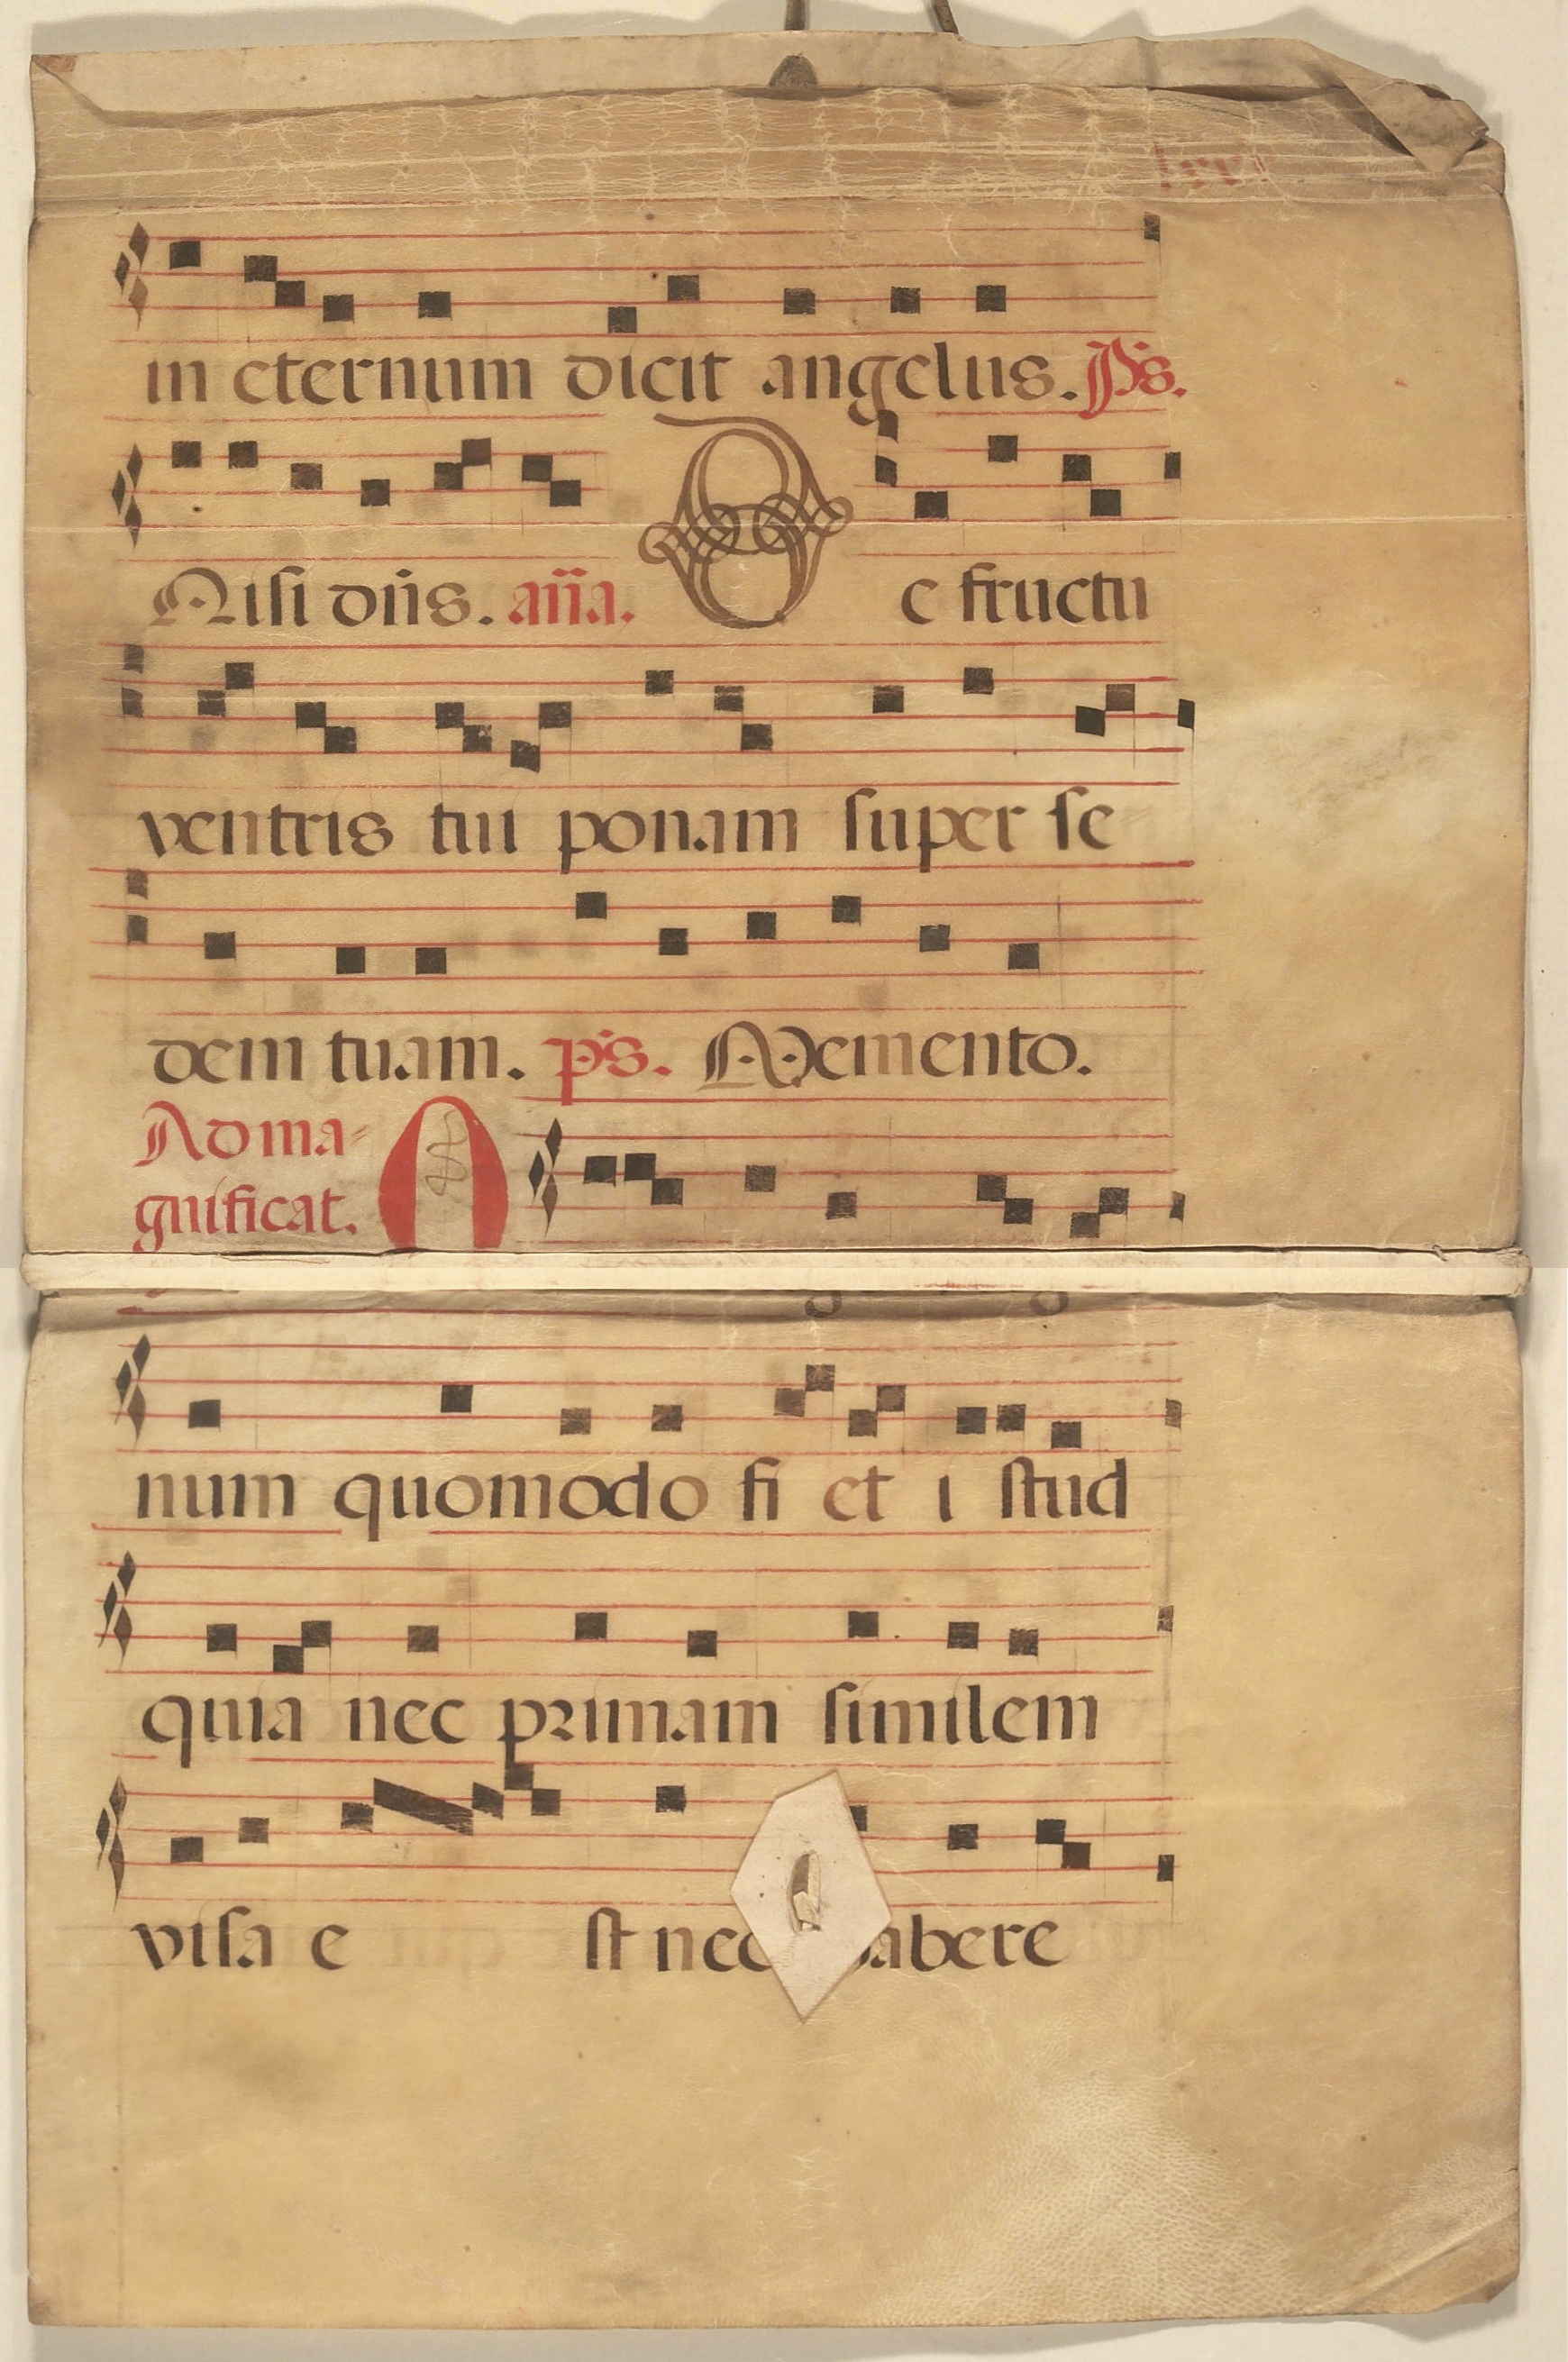 in eternum dicit angelus. Ps.
Nisi dñs. aña. De fructu
ventris tui ponam super se
dem tuam. ps. Memento.
Ad ma-
gnificat.
num quomodo fi et i stud
quia nec primam similem
visa e st nec abere